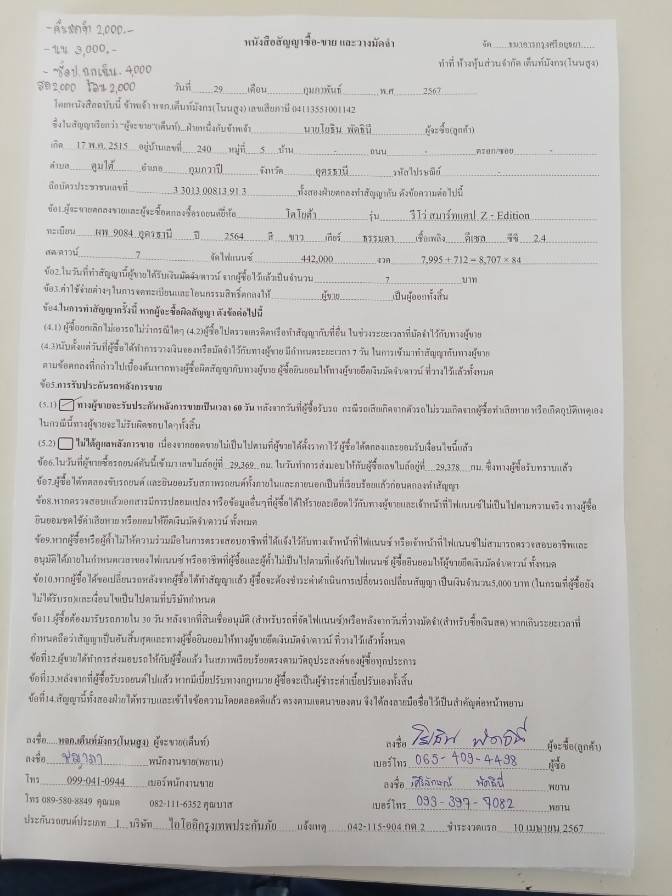 2,000.-
3,000.-
4,000
2,000
หนังสือสัญญาซื้อ-ขาย และวางมัดจำ
จัด.....ธนาคารกรุงศรีอยุธยา.....
ทำที่ ห้างหุ้นส่วนจำกัด เต็นท์มังกร(โนนสูง)
วันที่ 29 เดือน กุมภาพันธ์ พ.ศ 2567
โดยหนังสือฉบับนี้ ข้าพเจ้า หจก.เต็นท์มังกร(โนนสูง) เลขเสียภาษี 04113551001142
ซึ่งในสัญญาเรียกว่า "ผู้จะขาย"(เต็นท์)...ฝ่ายหนึ่งกับข้าพเจ้า นายโยธิน พัดธินี ผู้จะซื้อ(ลูกค้า)
เกิด 17 พ.ค. 2515 อยู่บ้านเลขที่ 240 หมู่ที่ 5 บ้าน - ถนน - ตรอก/ซอย -
ตำบล ตูมใต้ อำเภอ กุมภวาปี จังหวัด อุดรธานี รหัสไปรษณีย์ -
ถือบัตรประชาชนเลขที่ 3 3013 00813 91 3 ทั้งสองฝ่ายตกลงทำสัญญากัน ดังข้อความต่อไปนี้
ข้อ1.ผู้จะขายตกลงขายและผู้จะซื้อตกลงซื้อรถยนต์ยี่ห้อ โตโยต้า รุ่น รีโว่ สมาร์ทแคป Z - Edition
ทะเบียน ผท 9084 อุดรธานี ปี 2564 สี ขาว เกียร์ ธรรมดา เชื้อเพลิง ดีเซล ซีซี 2.4
สด/ดาวน์ 7 จัดไฟแนนซ์ 442,000 งวด 7,995 + 712 = 8,707 × 84
ข้อ2.ในวันที่ทำสัญญานี้ผู้ขายได้รับเงินมัดจำ/ดาวน์ จากผู้ซื้อไว้แล้วเป็นจำนวน 7 บาท
ข้อ3.ค่าใช้จ่ายต่างๆในการจดทะเบียนและโอนกรรมสิทธิ์ตกลงให้ ผู้ขาย เป็นผู้ออกทั้งสิ้น
ข้อ4.ในการทำสัญญาครั้งนี้ หากผู้จะซื้อผิดสัญญา ดังข้อต่อไปนี้
(4.1) ผู้ซื้อยกเลิกไม่เอารถไม่ว่ากรณีใดๆ (4.2)ผู้ซื้อไปตรวจเครดิตหรือทำสัญญากับที่อื่น ในช่วงระยะเวลาที่มัดจำไว้กับทางผู้ขาย
(4.3)นับตั้งแต่วันที่ผู้ซื้อได้ทำการวางเงินจองหรือมัดจำไว้กับทางผู้ขาย มีกำหนดระยะเวลา 7 วัน ในการเข้ามาทำสัญญากับทางผู้ขาย
ตามข้อตกลงที่กล่าวไปเบื้องต้นหากทางผู้ซื้อผิดสัญญากับทางผู้ขาย ผู้ซื้อยินยอมให้ทางผู้ขายยึดเงินมัดจำ/ดาวน์ ที่วางไว้แล้วทั้งหมด
ข้อ5.การรับประกันรถหลังการขาย
(5.1) ทางผู้ขายจะรับประกันหลังการขายเป็นเวลา 60 วัน หลังจากวันที่ผู้ซื้อรับรถ กรณีรถเสียเกิดจากตัวรถไม่รวมเกิดจากผู้ซื้อทำเสียหาย หรือเกิดอุบัติเหตุเอง
ในกรณีนี้ทางผู้ขายจะไม่รับผิดชอบใดๆทั้งสิ้น
(5.2) ไม่ได้ดูแลหลังการขาย เนื่องจากยอดขายไม่เป็นไปตามที่ผู้ขายได้ตั้งราคาไว้ ผู้ซื้อได้ตกลงและยอมรับเงื่อนไขนี้แล้ว
ข้อ6.ในวันที่ผู้ขายซื้อรถยนต์คันนี้เข้ามา เลขไมล์อยู่ที่ 29,369 กม. ในวันทำการส่งมอบให้กับผู้ซื้อเลขไมล์อยู่ที่ 29,378 กม. ซึ่งทางผู้ซื้อรับทราบแล้ว
ข้อ7.ผู้ซื้อได้ทดลองขับรถยนต์ และยินยอมรับสภาพรถยนต์ทั้งภายในและภายนอกเป็นที่เรียบร้อยแล้วก่อนตกลงทำสัญญา
ข้อ8.หากตรวจสอบแล้วเอกสารมีการปลอมแปลง หรือข้อมูลอื่นๆที่ผู้ซื้อได้ให้รายละเอียดไว้กับทางผู้ขายและเจ้าหน้าที่ไฟแนนซ์ไม่เป็นไปตามความจริง ทางผู้ซื้อ
ยินยอมชดใช้ค่าเสียหาย หรือยอมให้ยึดเงินมัดจำ/ดาวน์ ทั้งหมด
ข้อ9.หากผู้ซื้อหรือผู้ค้ำไม่ให้ความร่วมมือในการตรวจสอบอาชีพที่ได้แจ้งไว้กับทางเจ้าหน้าที่ไฟแนนซ์ หรือเจ้าหน้าที่ไฟแนนซ์ไม่สามารถตรวจสอบอาชีพและ
อนุมัติได้ภายในกำหนดเวลาของไฟแนนซ์ หรืออาชีพที่ผู้ซื้อและผู้ค้ำไม่เป็นไปตามที่แจ้งกับไฟแนนซ์ ผู้ซื้อยินยอมให้ผู้ขายยึดเงินมัดจำ/ดาวน์ ทั้งหมด
ข้อ10.หากผู้ซื้อได้ขอเปลี่ยนรถหลังจากผู้ซื้อได้ทำสัญญาแล้ว ผู้ซื้อจะต้องชำระค่าดำเนินการเปลี่ยนรถเปลี่ยนสัญญา เป็นเงินจำนวน5,000 บาท (ในกรณีที่ผู้ซื้อยัง
ไม่ได้รับรถ)และเงื่อนไขเป็นไปตามที่บริษัทกำหนด
ข้อ11.ผู้ซื้อต้องมารับรถภายใน 30 วัน หลังจากที่สินเชื่ออนุมัติ (สำหรับรถที่จัดไฟแนนซ์)หรือหลังจากวันที่วางมัดจำ(สำหรับซื้อเงินสด) หากเกินระยะเวลาที่
กำหนดถือว่าสัญญาเป็นอันสิ้นสุดและทางผู้ซื้อยินยอมให้ทางผู้ขายยึดเงินมัดจำ/ดาวน์ ที่วางไว้แล้วทั้งหมด
ข้อที่12.ผู้ขายได้ทำการส่งมอบรถให้กับผู้ซื้อแล้ว ในสภาพเรียบร้อยตรงตามวัตถุประสงค์ของผู้ซื้อทุกประการ
ข้อที่13.หลังจากที่ผู้ซื้อรับรถยนต์ไปแล้ว หากมีเบี้ยปรับทางกฎหมาย ผู้ซื้อจะเป็นผู้ชำระค่าเบี้ยปรับเองทั้งสิ้น
ข้อที่14.สัญญานี้ทั้งสองฝ่ายได้ทราบและเข้าใจข้อความโดยตลอดดีแล้ว ตรงตามเจตนาของตน จึงได้ลงลายมือชื่อไว้เป็นสำคัญต่อหน้าพยาน
ลงชื่อ.....หจก.เต็นท์มังกร(โนนสูง) ผู้จะขาย(เต็นท์)
ลงชื่อ โยธิน พัดธินี ผู้จะซื้อ(ลูกค้า)
ลงชื่อ พนักงานขาย(พยาน)
เบอร์โทร 065-409-4498 ผู้ซื้อ
โทร 099-041-0944 เบอร์พนักงานขาย
ลงชื่อ ศิริลักษณ์ พัดธินี พยาน
โทร 089-580-8849 คุณมด 082-111-6352 คุณบาส
เบอร์โทร 093-397-9082 พยาน
ประกันรถยนต์ประเภท 1 บริษัท ไอโออิกรุงเทพประกันภัย แจ้งเหตุ 042-115-904 กด 2 ชำระงวดแรก 10 เมษายน 2567